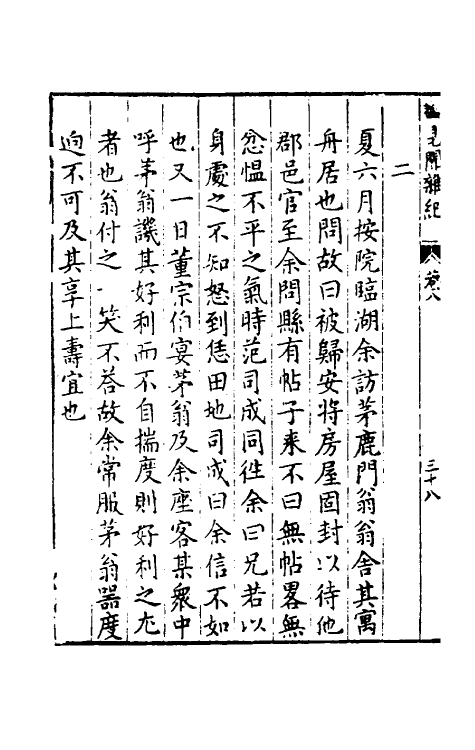 見聞雜紀
卷八
三十八
二
夏六月按院臨湖余訪茅鹿門翁翁舍其寓
舟居也問故曰被歸安將房屋固封以待他
郡邑官至余問縣有帖子來不曰無帖畧無
忿愠不平之氣時范司成同徃余曰兄若以
身處之不知怒到恁田地司成曰余信不如
也又一日董宗伯宴茅翁及余座客某衆中
呼茅翁譏其好利而不自揣度則好利之尤
者也翁付之一笑不荅故余常服茅翁噐度
逈不可及其享上壽宜也